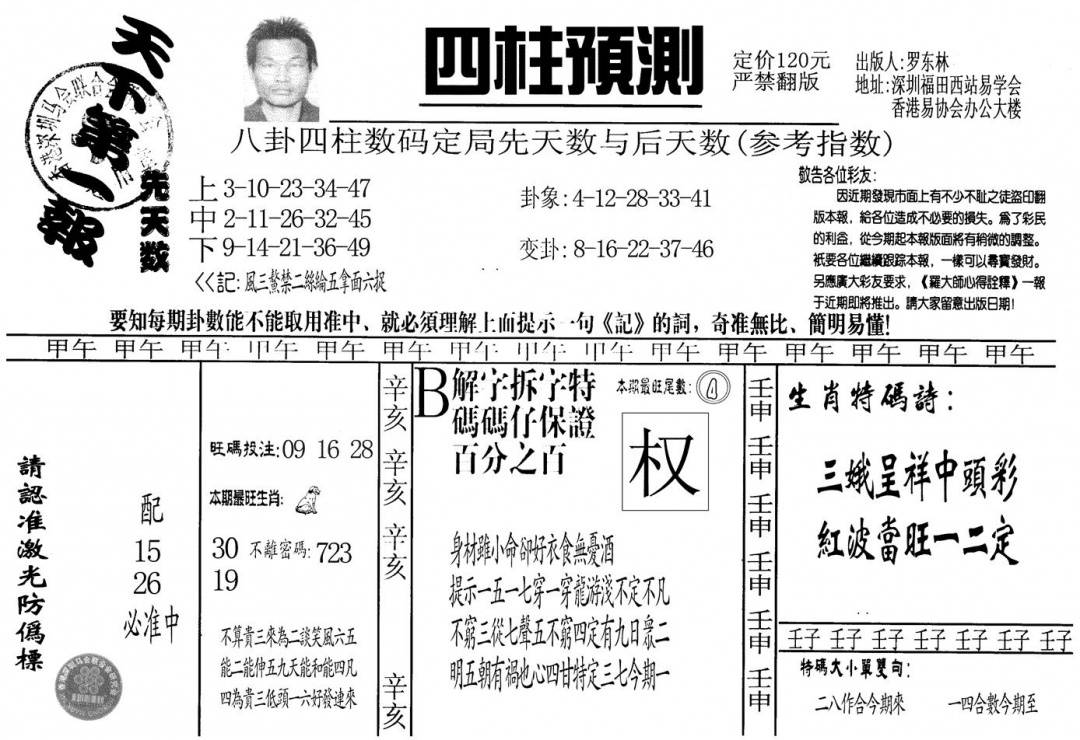 天下第一報
四柱預測
定价120元
严禁翻版
出版人:罗东林
地址:深圳福田西站易学会
香港易协会办公大楼
八卦四柱数码定局先天数与后天数(参考指数)
先天数
上 3-10-23-34-47
中 2-11-26-32-45
下 9-14-21-36-49
卦象:4-12-28-33-41
变卦:8-16-22-37-46
<<記:風三鰲禁二絲綸五拿面六捉
敬告各位彩友:
因近期發現市面上有不少不耻之徒盜印翻
版本報，給各位造成不必要的損失。爲了彩民
的利益，從今期起本報版面將有稍微的調整。
衹要各位繼續跟踪本報，一樣可以尋寶發財。
另應廣大彩友要求，《羅大師心得詮釋》一報
于近期即將推出。請大家留意出版日期!
要知每期卦數能不能取用准中、就必須理解上面提示一句《記》的詞，奇准無比、簡明易懂!
甲午 甲午 甲午 甲午 甲午 甲午 甲午 甲午 甲午 甲午 甲午 甲午 甲午 甲午 甲午
請認准激光防僞標
配
15
26
必准中
旺碼投注:09 16 28
本期最旺生肖:
30 不離密碼:723
19
不算貴三來為二談笑風六五
能二能伸五九天能和能四凡
四為貴三低頭一六好發連來
辛亥
辛亥
辛亥
辛亥
B解字拆字特
碼碼仔保證
百分之百
本期最旺尾數:4
权
身材雖小命卻好衣食無憂酒
提示一五一七穿一穿龍游淺不定不凡
不窮三從七聲五不窮四定有九日衆二
明五朝有禍也心四甘特定三七今期一
壬申
壬申
壬申
壬申
壬申
壬申
生肖特碼詩:
三娥呈祥中頭彩
紅波當旺一二定
壬子 壬子 壬子 壬子 壬子 壬子 壬子
特碼大小單雙句:
二八作合今期來 一四合數今期至